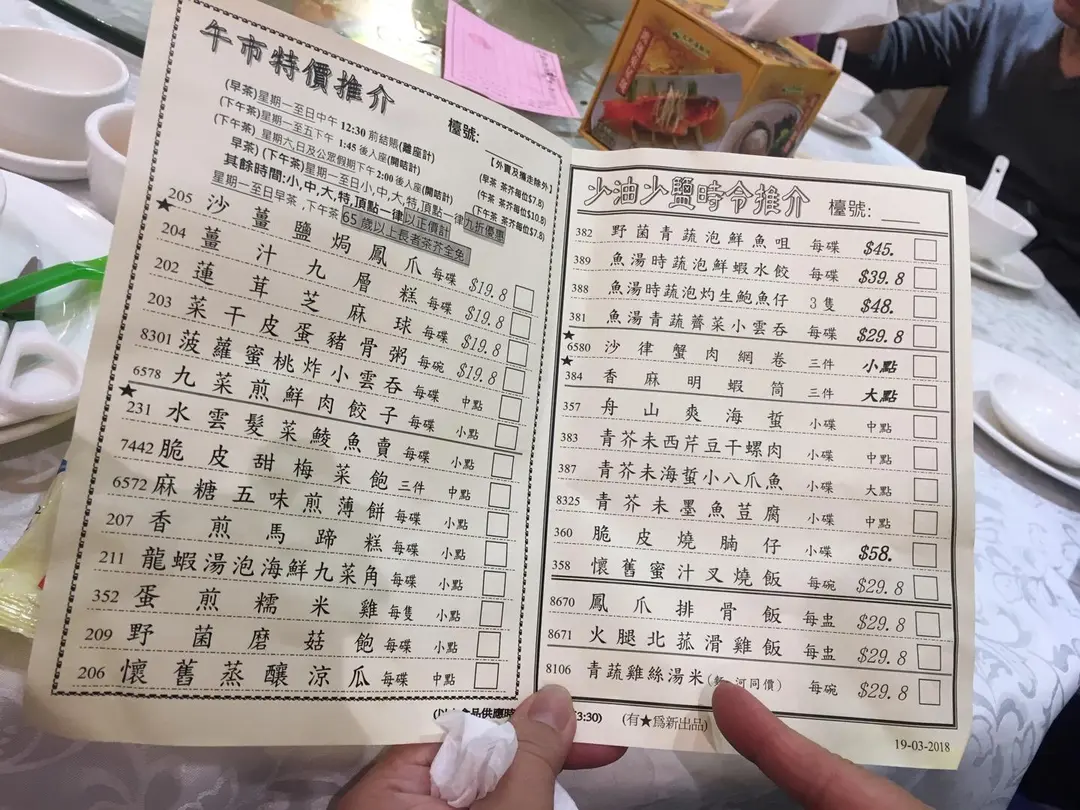 午市特價推介
檯號:
(早茶)星期一至日中午 12:30 前結賬(離座計)
(下午茶)星期一至五下午 1:45 後入座(開咭計)
(下午茶) 星期六,日及公眾假期下午2:00 後入座(開咭計)
【外賣及攜走除外】
(早茶 茶芥每位$7.8)
(午茶 茶芥每位$10.8)
(下午茶 茶芥每位$7.8)
早茶) (下午茶)星期一至日小,中,大,特,頂點一律以正價計
其餘時間:小,中,大,特,頂點一律九折優惠
星期一至日早茶 ,下午茶 65 歲以上長者茶芥全免
205 沙薑鹽焗鳳爪 每碟 $19.8
★
204 薑汁九層糕 每碟 $19.8
202 蓮茸芝麻球 每碟 $19.8
203 菜干皮蛋豬骨粥 每碗 $19.8
8301 菠蘿蜜桃炸小雲吞 每碟 中點
6578 九菜煎鮮肉餃子 每碟 小點
★
231 水雲髮菜鯪魚賣 每碟 小點
7442 脆皮甜梅菜飽 三件 中點
6572 麻糖五味煎薄餅 每碟 小點
207 香煎馬蹄糕 每碟 小點
211 龍蝦湯泡海鮮九菜角 每碟 小點
352 蛋煎糯米雞 每隻 小點
209 野菌磨菇飽 每碟 小點
206 懷舊蒸釀涼瓜 每碟 中點
3:30)
少油少鹽時令推介 檯號:
382 野菌青蔬泡鮮魚咀 每碟 $45.
389 魚湯時蔬泡鮮蝦水餃 每碟 $39.8
388 魚湯時蔬泡灼生鮑魚仔 3 隻 $48.
381 魚湯青蔬薺菜小雲吞 每碟 $29.8
★
6580 沙律蟹肉網卷 三件 小點
★
384 香麻明蝦筒 三件 大點
357 舟山爽海蜇 小碟 中點
383 青芥末西芹豆干螺肉 小碟 中點
387 青芥末海蜇小八爪魚 小碟 大點
8325 青芥末墨魚荳腐 小碟 中點
360 脆皮燒腩仔 小碟 $58.
358 懷舊蜜汁叉燒飯 每碗 $29.8
8670 鳳爪排骨飯 每盅 $29.8
8671 火腿北菰滑雞飯 每盅 $29.8
8106 青蔬雞絲湯米( 河同價) 每碗 $29.8
(有★爲新出品)
19-03-2018